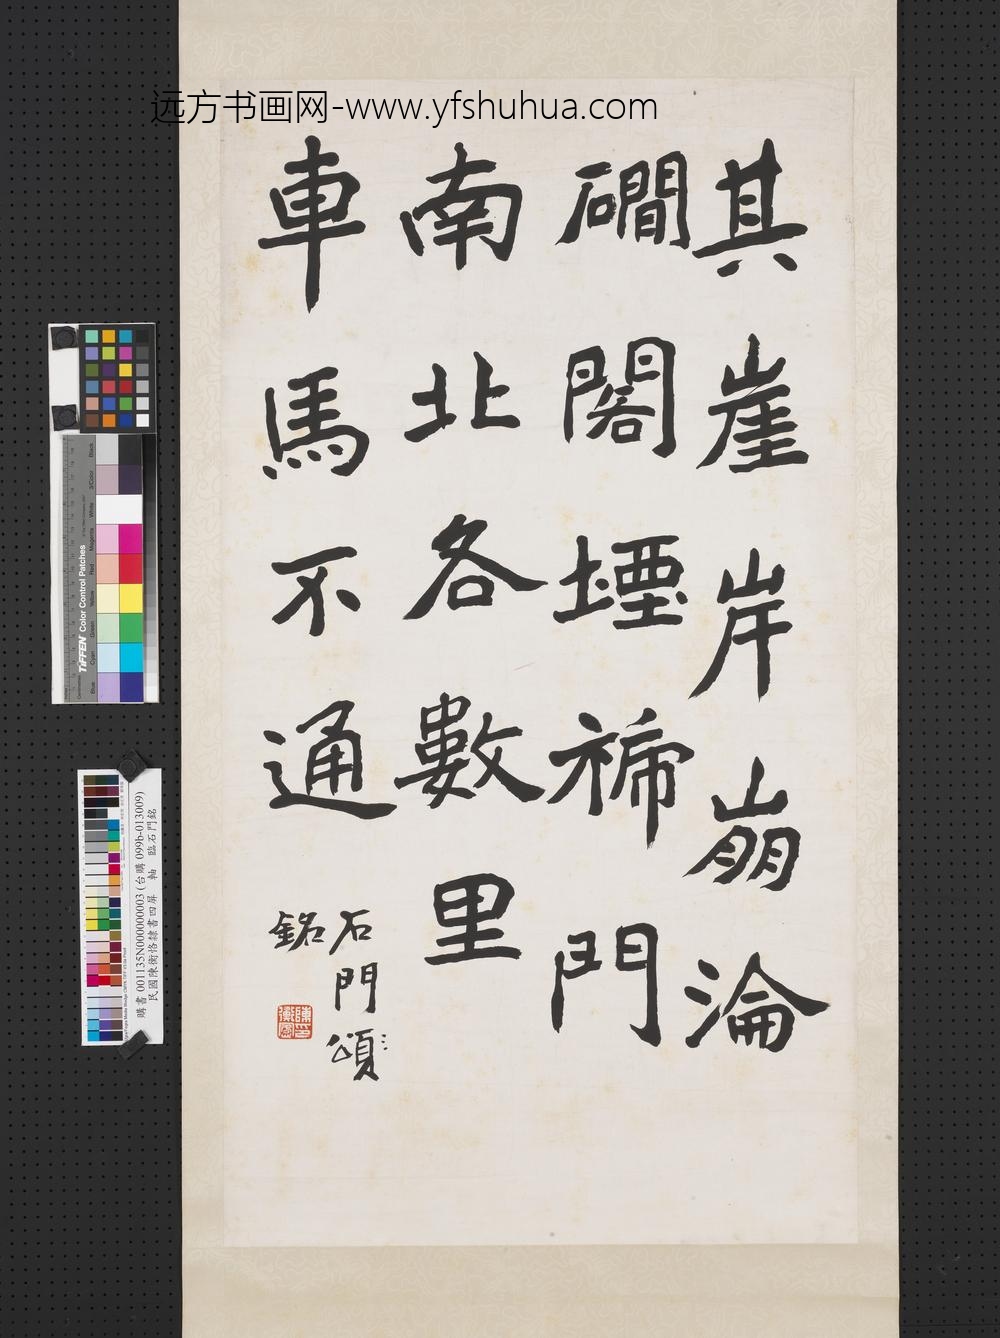 远方书画网-www.yfshuhua.com
其崖岸崩淪
磵閣堙褅門
南北各數里
車馬不通
石門頌
銘
Black
3/Color
White
Magenta
Red
Yellow
Green
Cyan
Blue
TIFFEN Color Control Patches
購書 001135N000000003 (台購 099b-013009)
民國陳衡恪隸書四屏 軸 臨石門銘